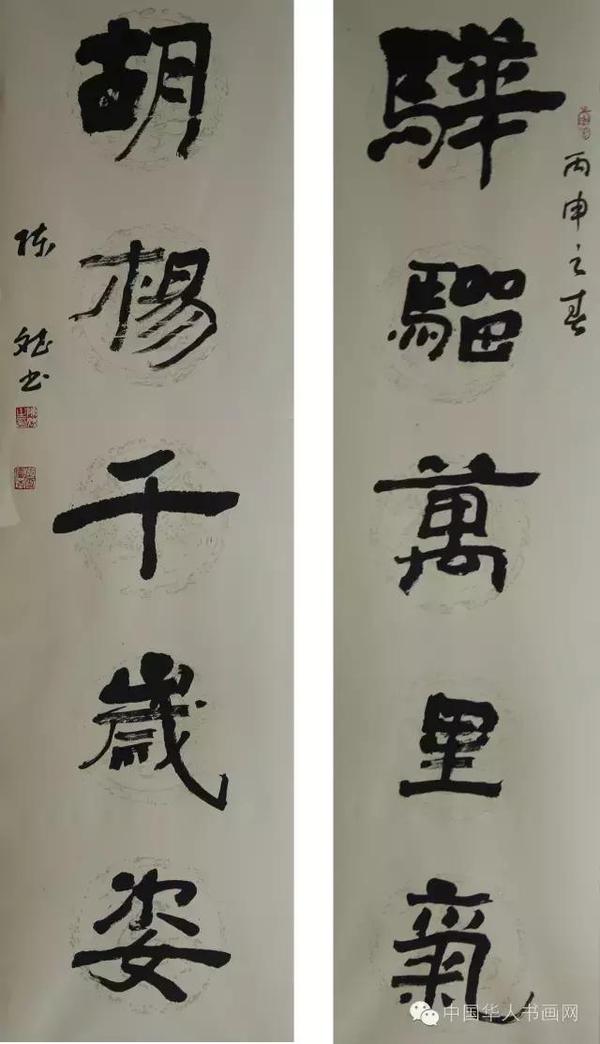 驊騮萬里氣
丙申之春
胡楊千歲姿
陈
书
中国华人书画网